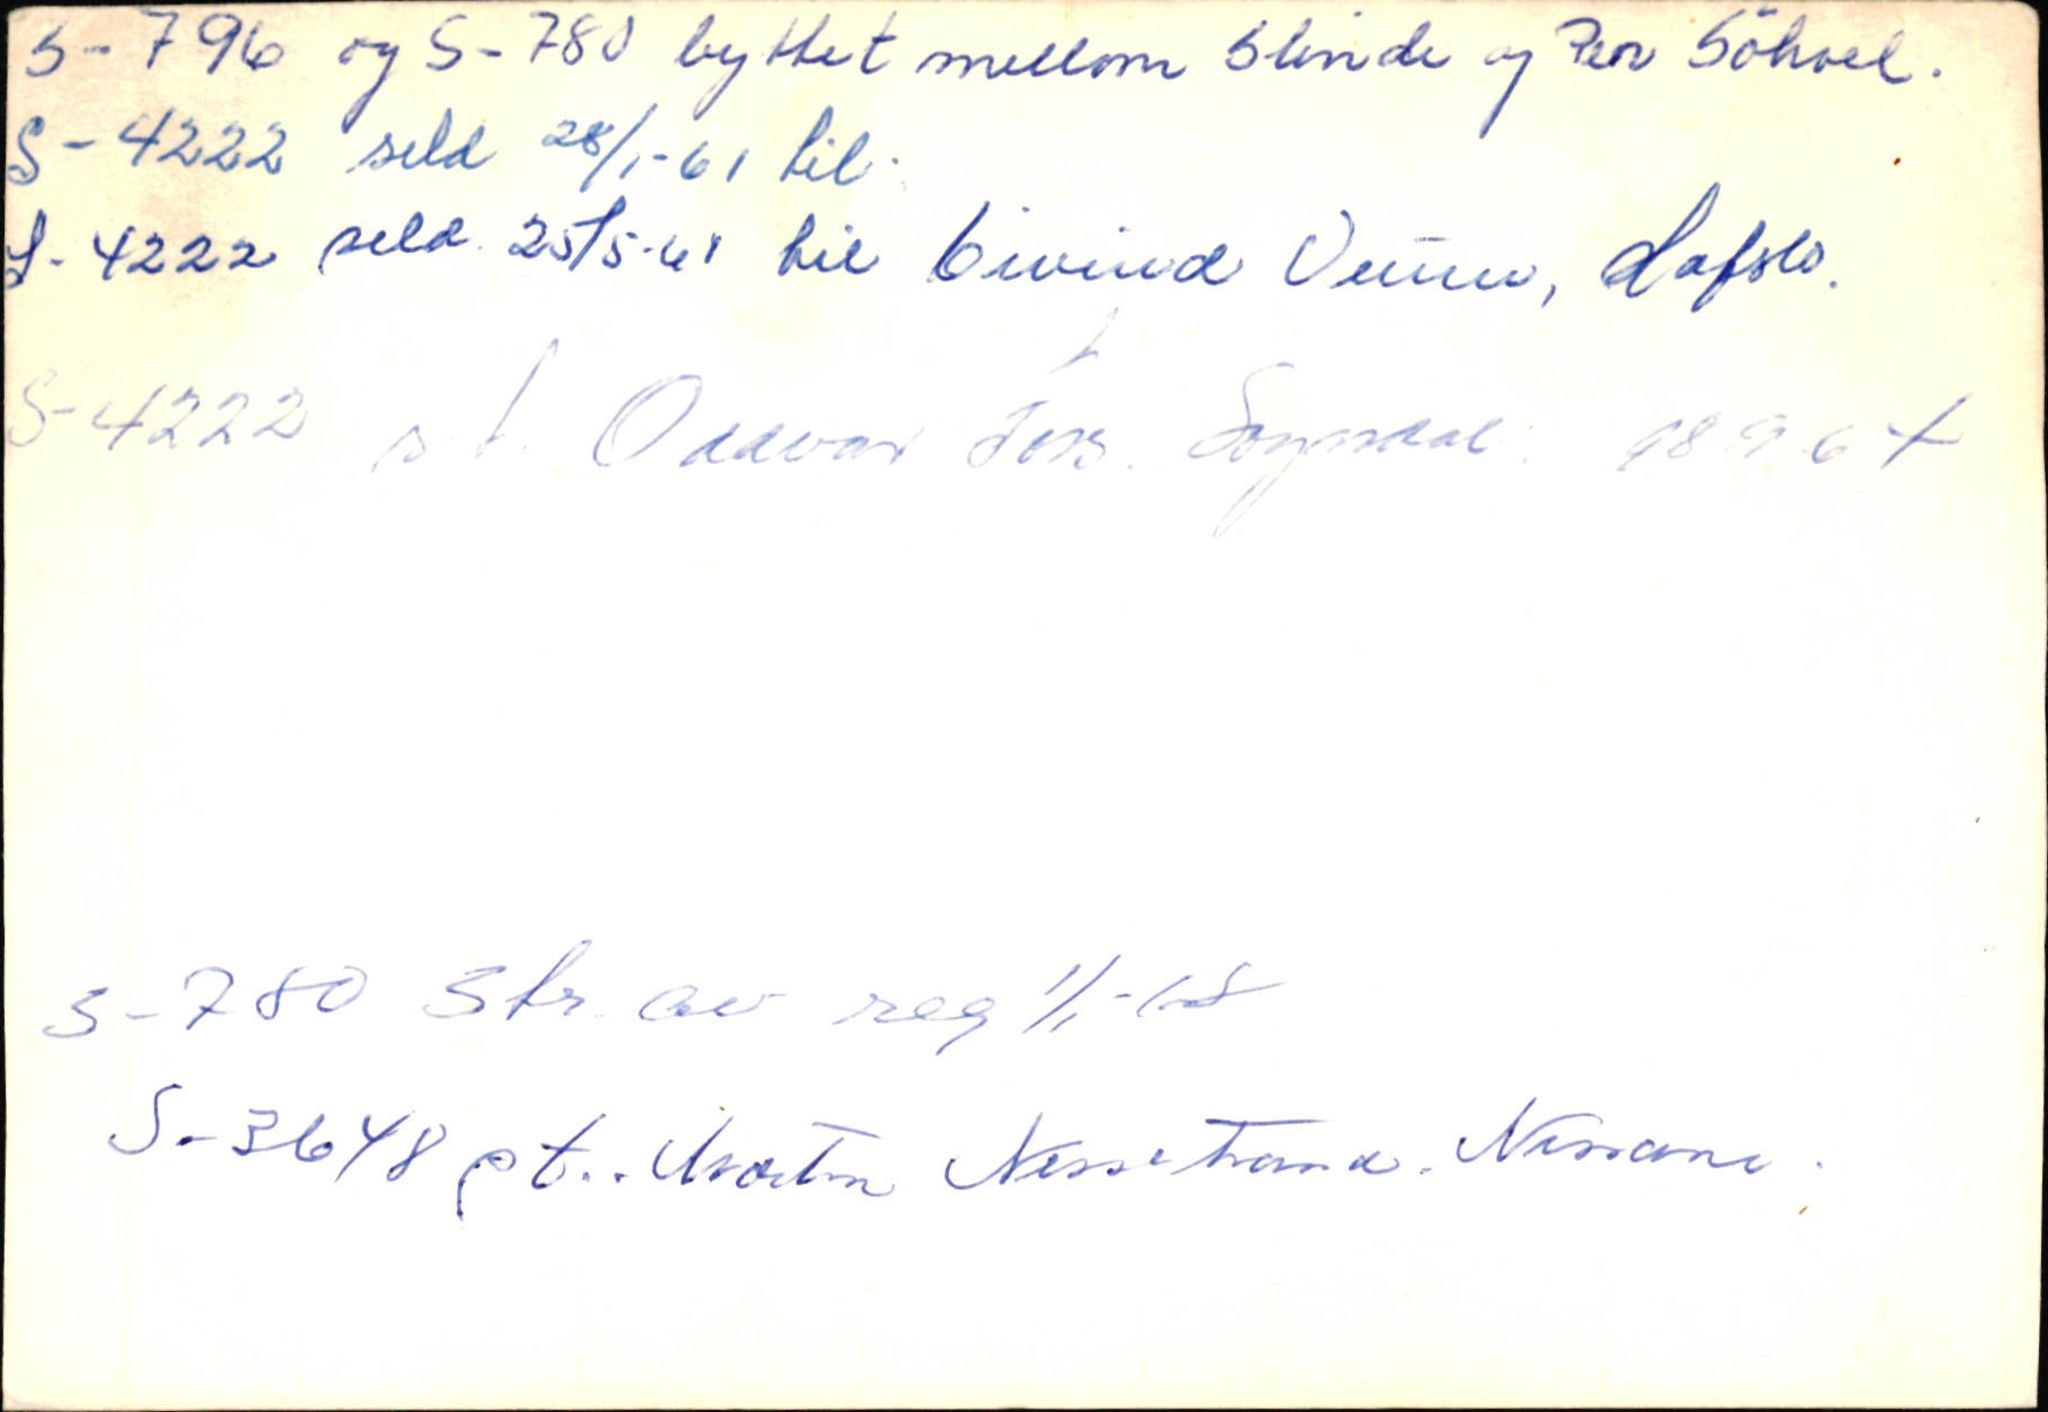 S-796 og S-780 byttet mellom Slinde og Per Söhvel.
S-4222 seld 28/1-61 til.
S-4222 seld 25/5-61 til Eivind Venum, Hafslo.
S-4222 s. t. Oddvar Sogndal.
S-780 Str. av reg 1/1-68
S-3648 pt.. Martin Nessetrand.